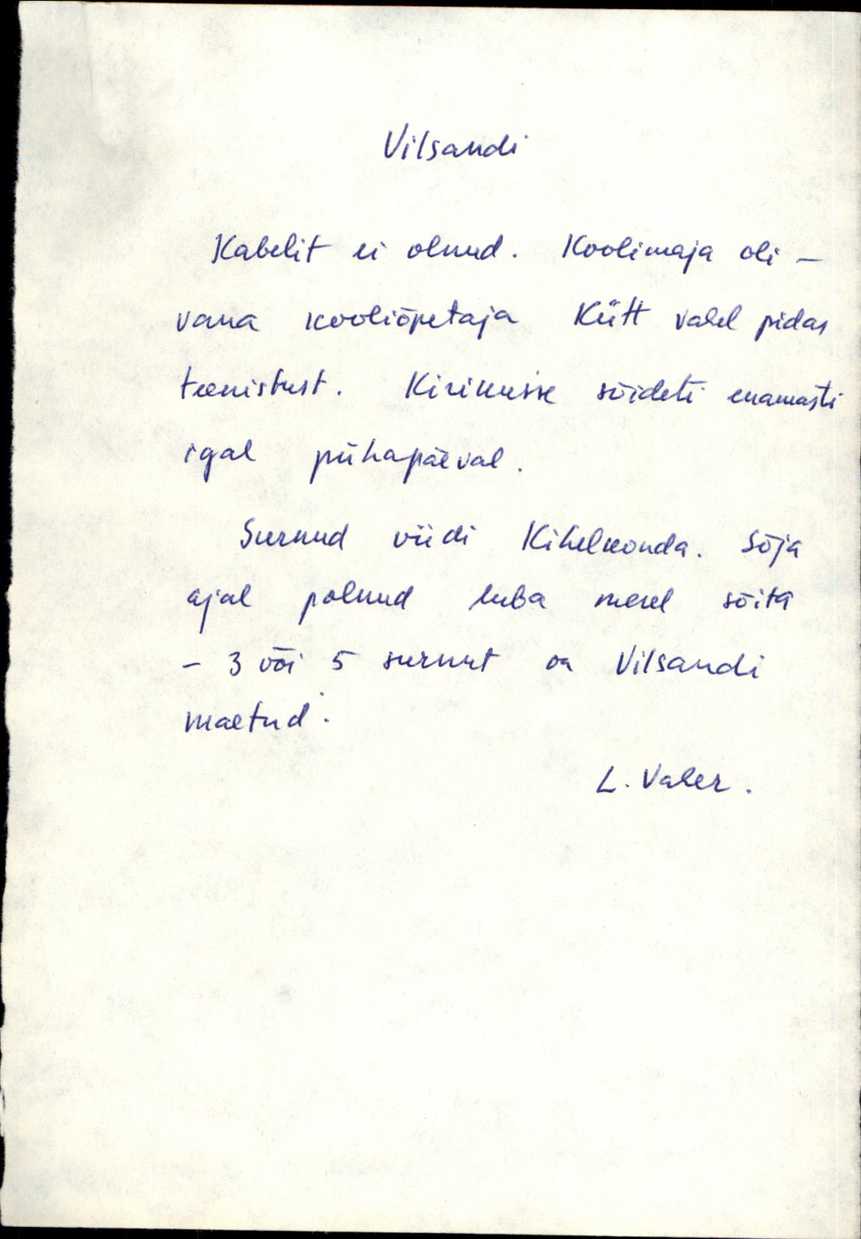 Vilsandi
Kabelit ei olnud. Koolimaja oli –
vana kooliõpetaja Kütt vahel pidas
teenistust. Kirikusse sõideti enamasti
igal pühapäeval.
Surnud viidi Kihelkonda. Sõja
ajal polnud luba merel sõita
– 3 või 5 surnut on Vilsandi
maetud.
L. Vaher.